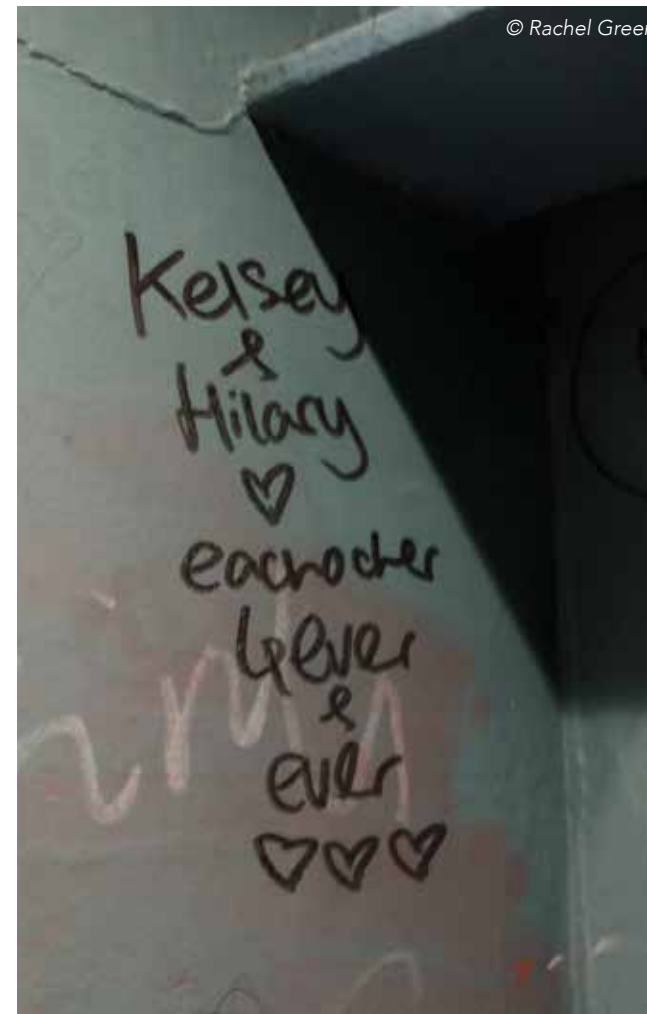 © Rachel Green
Kelsey
&
Hilary
♡
eachother
4ever
&
ever
♡♡♡